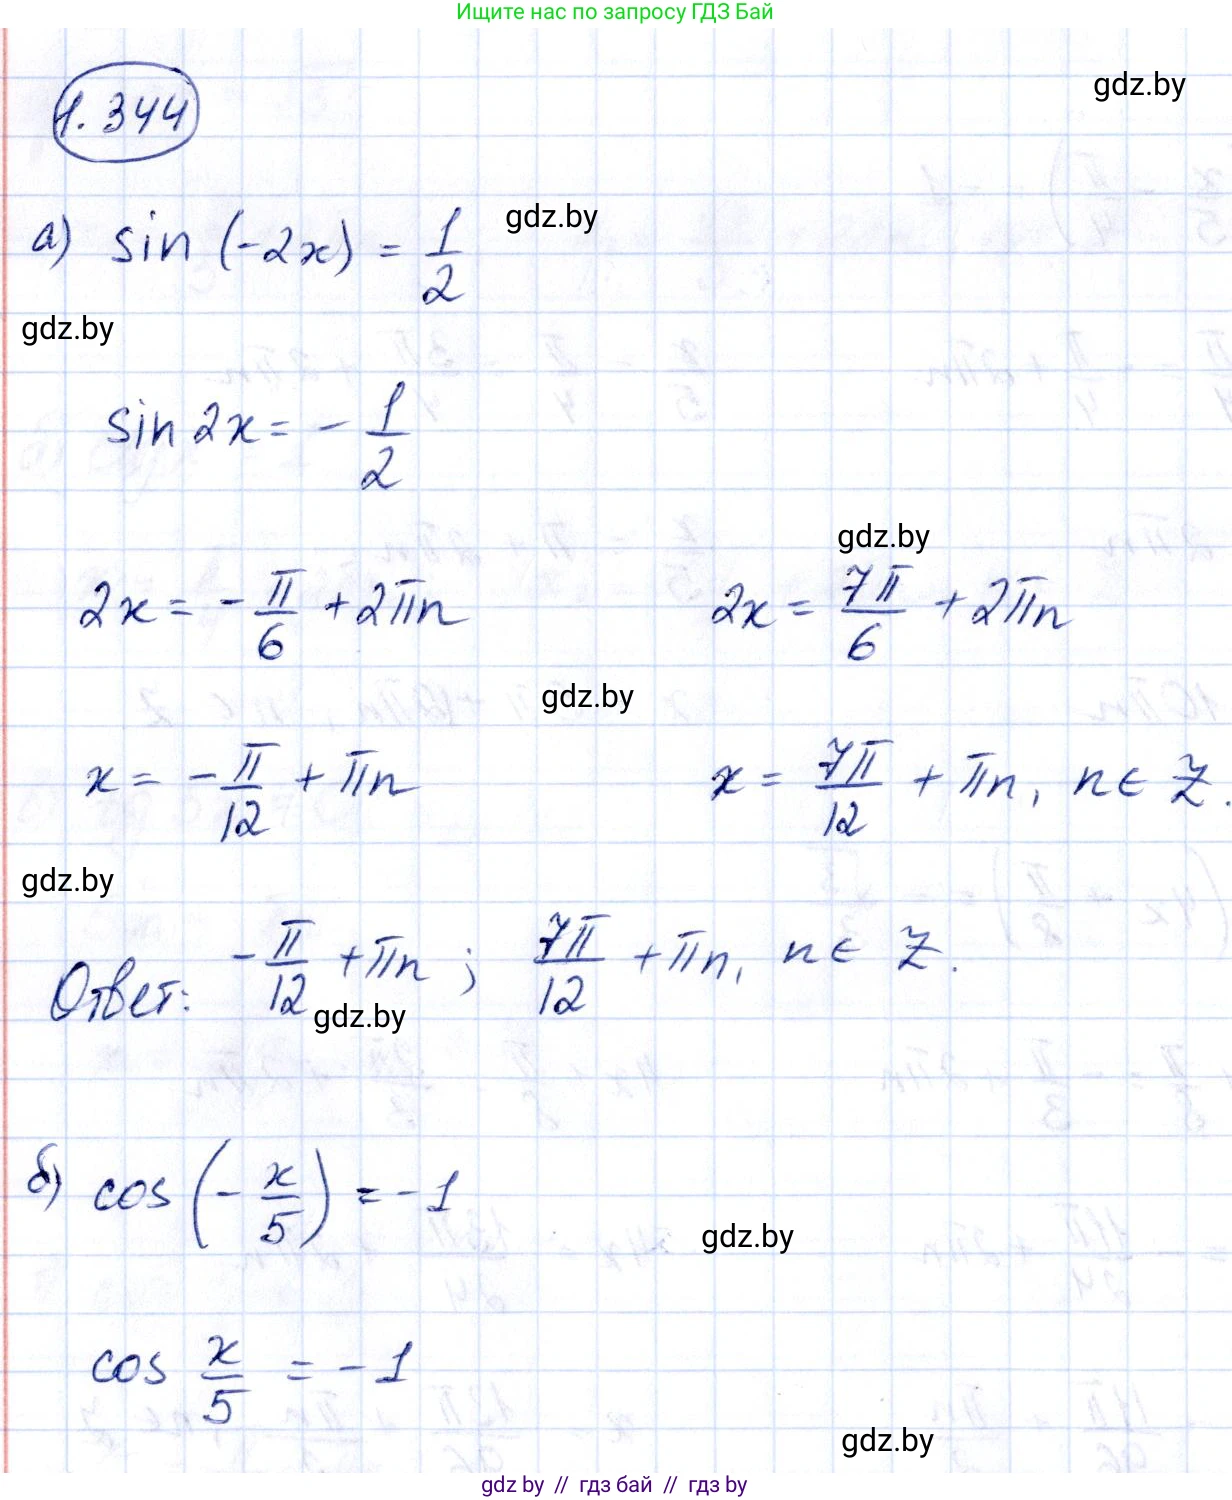 Ищите нас по запросу ГДЗ Бай
1.344
gdz.by
а) sin (-2x) = 1/2
gdz.by
gdz.by
sin 2x = - 1/2
gdz.by
2x = - π/6 + 2πn 2x = 7π/6 + 2πn
gdz.by
x = - π/12 + πn x = 7π/12 + πn, n ∈ Z.
gdz.by
Ответ: - π/12 + πn; 7π/12 + πn, n ∈ Z.
gdz.by
б) cos (- x/5) = -1
gdz.by
cos x/5 = -1
gdz.by
gdz by // гдз бай // gdz by